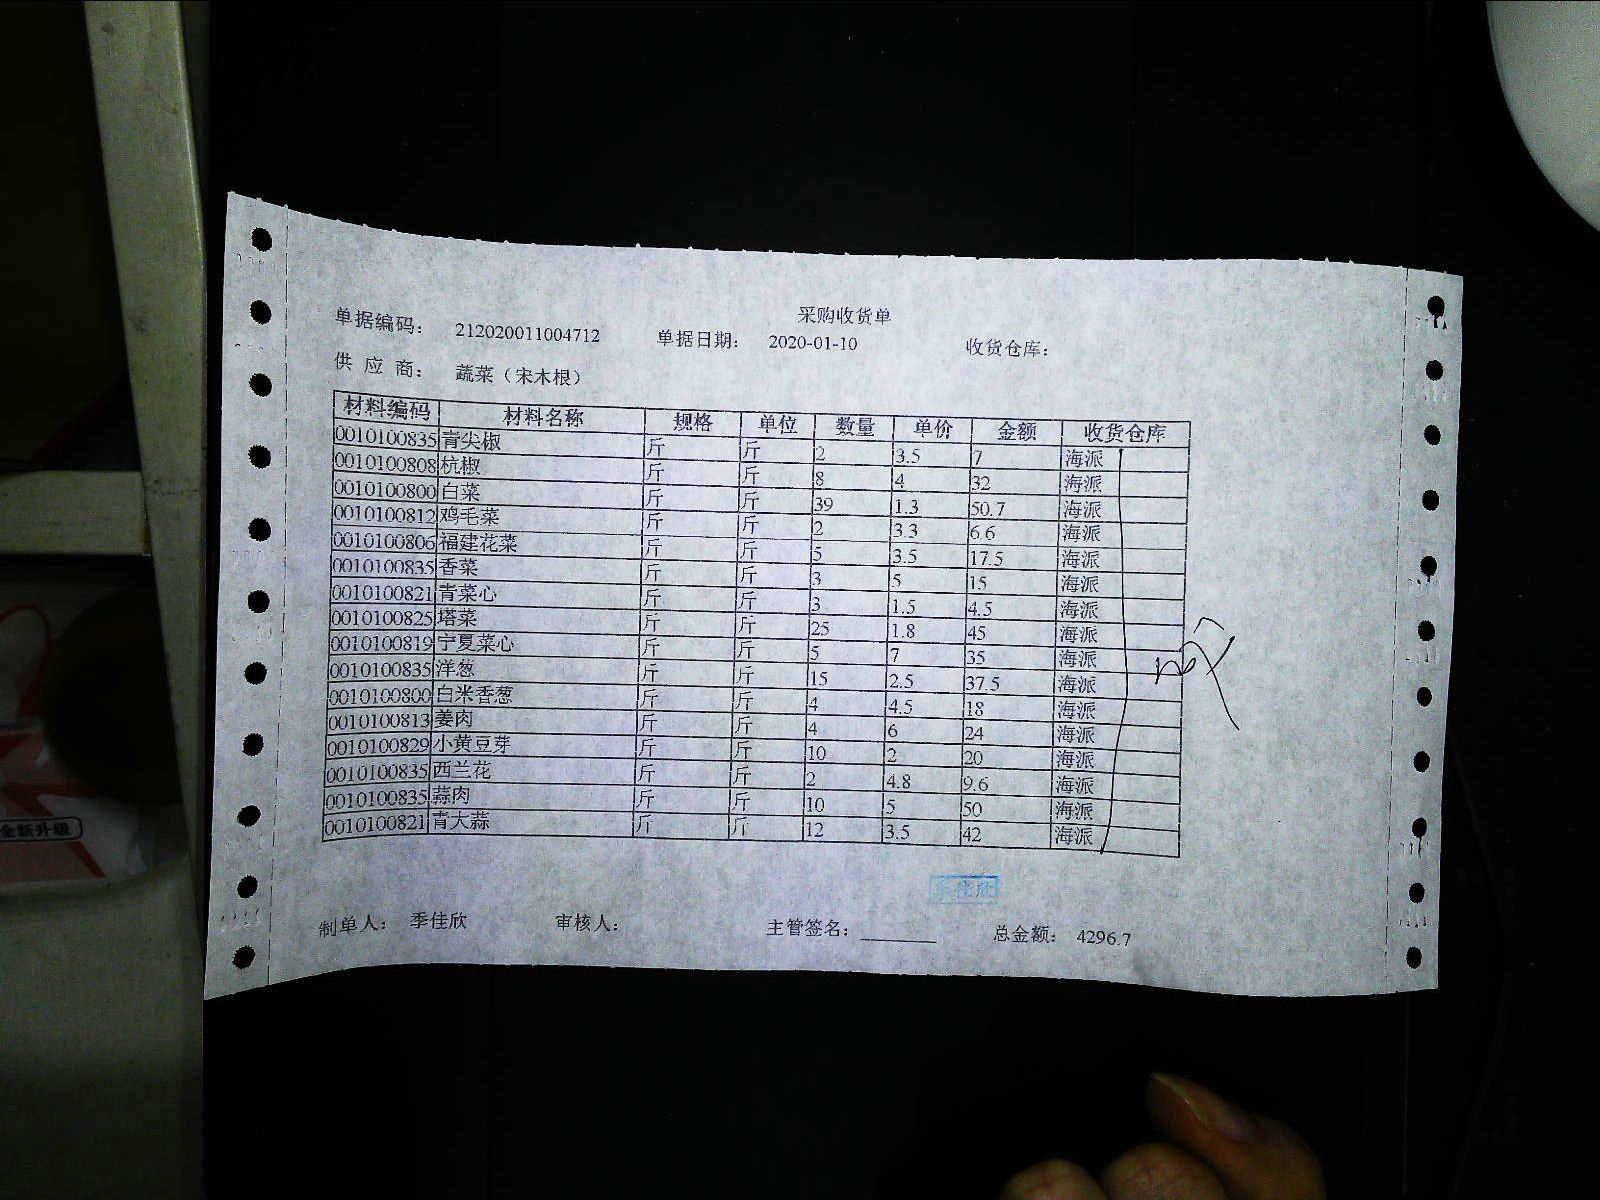 采购收货单
单据编码： 212020011004712 单据日期： 2020-01-10 收货仓库：
供 应 商： 蔬菜（宋木根）
材料编码 材料名称 规格 单位 数量 单价 金额 收货仓库
0010100835 青尖椒 斤 斤 2 3.5 7 海派
0010100808 杭椒 斤 斤 8 4 32 海派
0010100800 白菜 斤 斤 39 1.3 50.7 海派
0010100812 鸡毛菜 斤 斤 2 3.3 6.6 海派
0010100806 福建花菜 斤 斤 5 3.5 17.5 海派
0010100835 香菜 斤 斤 3 5 15 海派
0010100821 青菜心 斤 斤 3 1.5 4.5 海派
0010100825 塔菜 斤 斤 25 1.8 45 海派
0010100819 宁夏菜心 斤 斤 5 7 35 海派
0010100835 洋葱 斤 斤 15 2.5 37.5 海派
0010100800 白米香葱 斤 斤 4 4.5 18 海派
0010100813 姜肉 斤 斤 4 6 24 海派
0010100829 小黄豆芽 斤 斤 10 2 20 海派
0010100835 西兰花 斤 斤 2 4.8 9.6 海派
0010100835 蒜肉 斤 斤 10 5 50 海派
0010100821 青大蒜 斤 斤 12 3.5 42 海派
季佳欣
制单人： 季佳欣 审核人： 主管签名： 总金额： 4296.7
全新升级